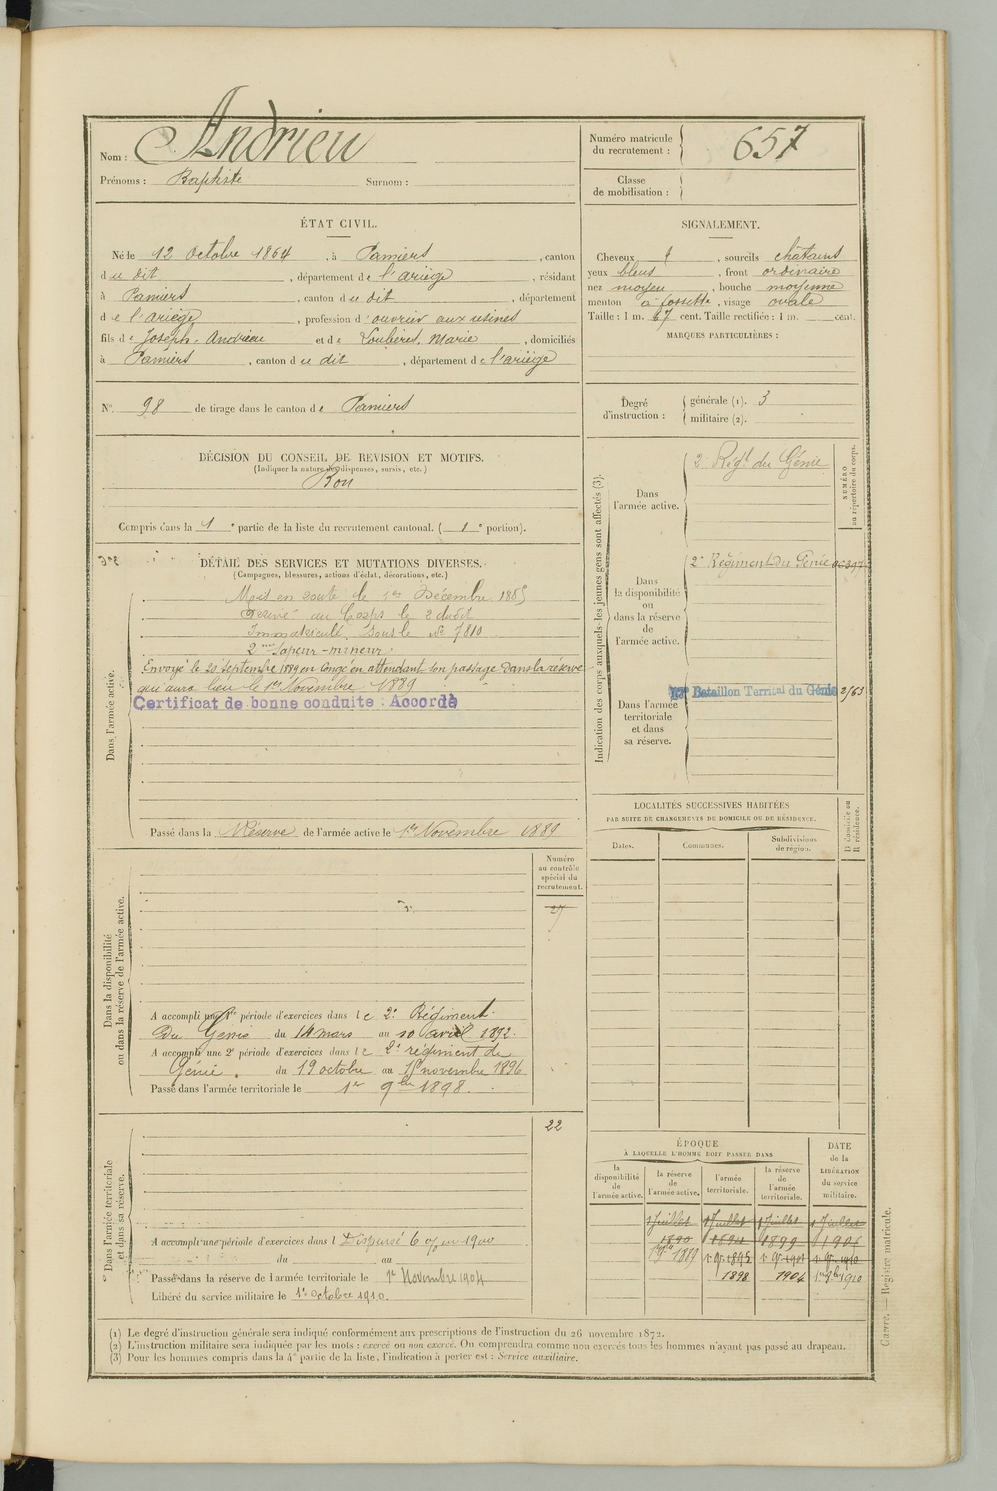 Nom : Andrieu
Prénoms : Baptiste Surnom :
Numéro matricule du recrutement : 657
Classe de mobilisation :
ÉTAT CIVIL.
Né le 12 Octobre 1864, à Pamiers, canton
du dit, département de l'ariège, résidant
à Pamiers, canton du dit, département
de l'ariège, profession d'ouvrier aux usines
fils de Joseph, Andrieu et de Loubères, Marie, domiciliés
à Pamiers, canton du dit, département de l'ariège
N° 98 de tirage dans le canton de Pamiers
SIGNALEMENT.
Cheveux, sourcils châtains
yeux bleus, front ordinaire
nez moyen, bouche moyenne
menton à fossette, visage ovale
Taille : 1 m. 67 cent. Taille rectifiée : 1 m. cent.
MARQUES PARTICULIÈRES :
Degré d'instruction : générale (1). 3
militaire (2).
DÉCISION DU CONSEIL DE REVISION ET MOTIFS.
(Indiquer la nature des dispenses, sursis, etc.)
Bon
Compris dans la 1e partie de la liste du recrutement cantonal. (1e portion).
DÉTAIL DES SERVICES ET MUTATIONS DIVERSES.
(Campagnes, blessures, actions d'éclat, décorations, etc.)
Dans l'armée active.
Mis en route le 1er Décembre 1885
Arrivé au Corps le 2 dudit
Immatriculé sous le N° 7810
2me Sapeur-mineur
Envoyé le 20 septembre 1889 en congé en attendant son passage dans la réserve
qui aura lieu le 1er Novembre 1889
Certificat de bonne conduite : Accordé
Passé dans la Réserve de l'armée active le 1er Novembre 1889
Indication des corps auxquels les jeunes gens sont affectés (3).
NUMÉRO au répertoire du corps.
Dans l'armée active.
2e Régt du Génie
Dans la disponibilité ou dans la réserve de l'armée active.
2e Régiment du Génie
Dans l'armée territoriale et dans sa réserve.
17e Bataillon Territal du Génie 2/63
LOCALITÉS SUCCESSIVES HABITÉES
PAR SUITE DE CHANGEMENTS DE DOMICILE OU DE RÉSIDENCE.
Dates.
Communes.
Subdivisions de région.
D domicile ou R résidence.
Dans la disponibilité ou dans la réserve de l'armée active.
Numéro au contrôle spécial du recrutement.
27
A accompli une 1re période d'exercices dans le 2e Régiment
du Génie du 14 mars au 10 avril 1892.
A accompli une 2e période d'exercices dans le 2e régiment du
Génie. du 19 octobre au 15 novembre 1896
Passé dans l'armée territoriale le 1er 9bre 1898.
Dans l'armée territoriale et dans sa réserve.
22
A accompli une période d'exercices dans l Dispensé
du au
Passé dans la réserve de l'armée territoriale le 1er Novembre 1904
Libéré du service militaire le 1er octobre 1910.
ÉPOQUE
À LAQUELLE L'HOMME DOIT PASSER DANS
la disponibilité de l'armée active.
la réserve de l'armée active.
l'armée territoriale.
la réserve de l'armée territoriale.
DATE de la LIBÉRATION du service militaire.
1 Juillet 1 Juillet 1 Juillet 1 Juillet
1890 1894 1899 1904
1889
1898 1904 1er 9bre 1910
(1) Le degré d'instruction générale sera indiqué conformément aux prescriptions de l'instruction du 26 novembre 1872.
(2) L'instruction militaire sera indiquée par les mots : exercé ou non exercé. On comprendra comme non exercés tous les hommes n'ayant pas passé au drapeau.
(3) Pour les hommes compris dans la 4e partie de la liste, l'indication à porter est : Service auxiliaire.
Guerre. — Registre matricule.